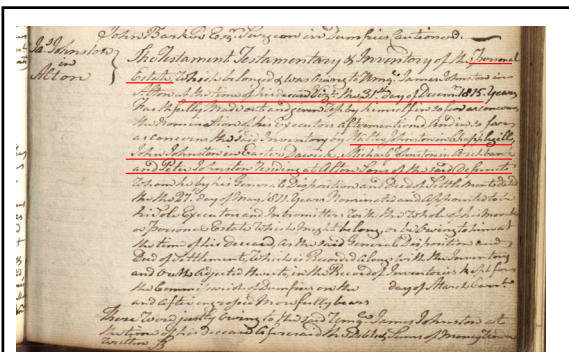 John Barker Esqr. Surgeon in Dumfries Cautioner.
Jas. Johnston
in
Alton
The Testament Testamentary & Inventory of the Personal
Estate Which belonged & was owing to Umqle. James Johnston in
Alton at the time of his decease Vizt. the 31st day of Decemr. 1815 years
Faithfully Made out and given up by himself in so far as concerns
the Nomination of his Executors aftermentioned And in so far
as concerns the said Inventory by Walter Johnston in Chapelgill
John Johnston in Easter Dawick, Michael Johnston in Archbank
and Peter Johnston residing at Alton Sons of the said defunct
to whom he by his General Disposition and Deed of Settlement dated
the 27 day of May 1811 years Nominated and Appointed to be
his sole Executors and Intromitters With the Whole of his Moveable
or personal Estate Which might belong or be owing to him at
the time of his Decease As the said General Disposition and
Deed of Settlement Which is Record along with the Inventory
and Oath Adjected thereto, in the Record of Inventories kept for
the Commissariot of Dumfries on the day of March Current
and after engrossed More fully bears
There Were justly owing to the said Umqle. James Johnston at
the time of his decease aforesaid the Debts & Sums of Money
written